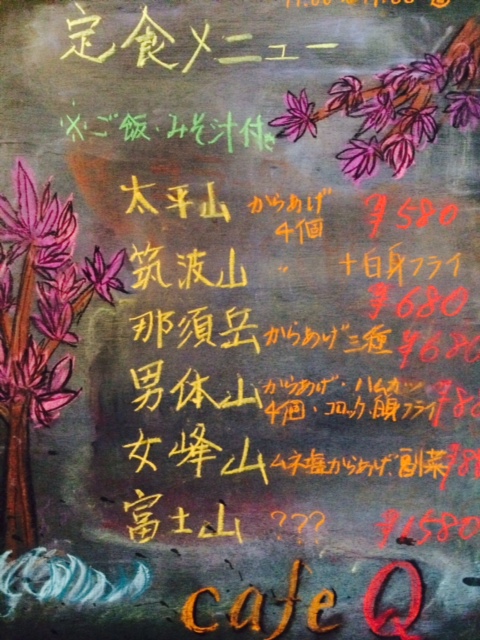 定食メニュー
※ご飯・みそ汁付き
太平山 からあげ 4個 ¥580
筑波山 〃 +白身フライ ¥680
那須岳 からあげ三種 ¥680
男体山 からあげ・ハムカツ
4個・コロッケ、白身フライ
女峰山 ムネ塩からあげ、副菜
富士山 ??? ¥1580
cafe Q